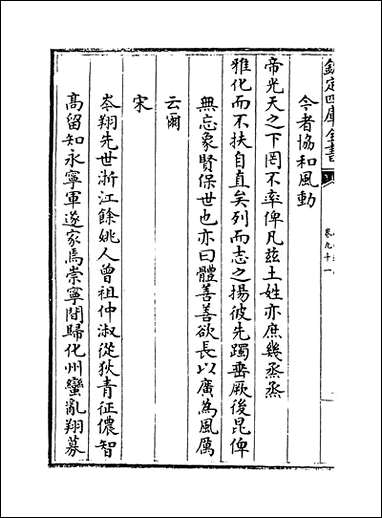 欽定四庫全書
卷九十一
今者協和風動
帝光天之下罔不率俾凡茲土姓亦庶幾烝烝
雅化而不扶自直矣列而志之揚彼先躅垂厥後昆俾
無忘象賢保世也亦曰體善善欲長以廣為風厲
云爾
宋
岑翔先世浙江餘姚人曾祖仲淑從狄青征儂智
高留知永寧軍遂家焉崇寧間歸化州蠻亂翔募